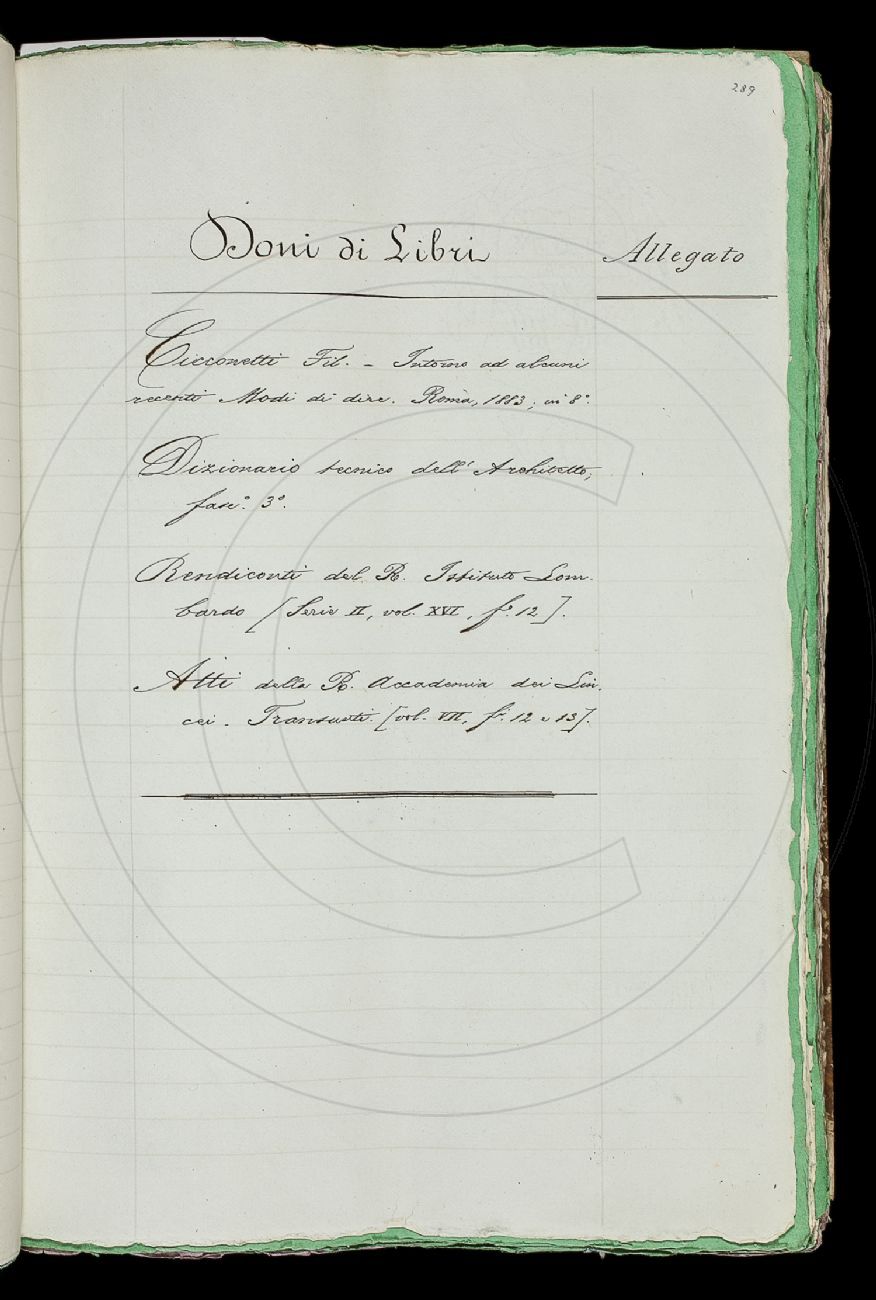 289
Doni di Libri
Allegato
Cicconetti Fil. - Intorno ad alcuni
recenti Modi di dire. Roma, 1883, in 8°.
Dizionario tecnico dell' Architetto,
fasc.° 3°.
Rendiconti del R. Istituto Lom-
bardo [Serie II, vol. XVI, f.° 12].
Atti della R. Accademia dei Lin-
cei. Transunti. [vol. VII, f.i 12 e 13].